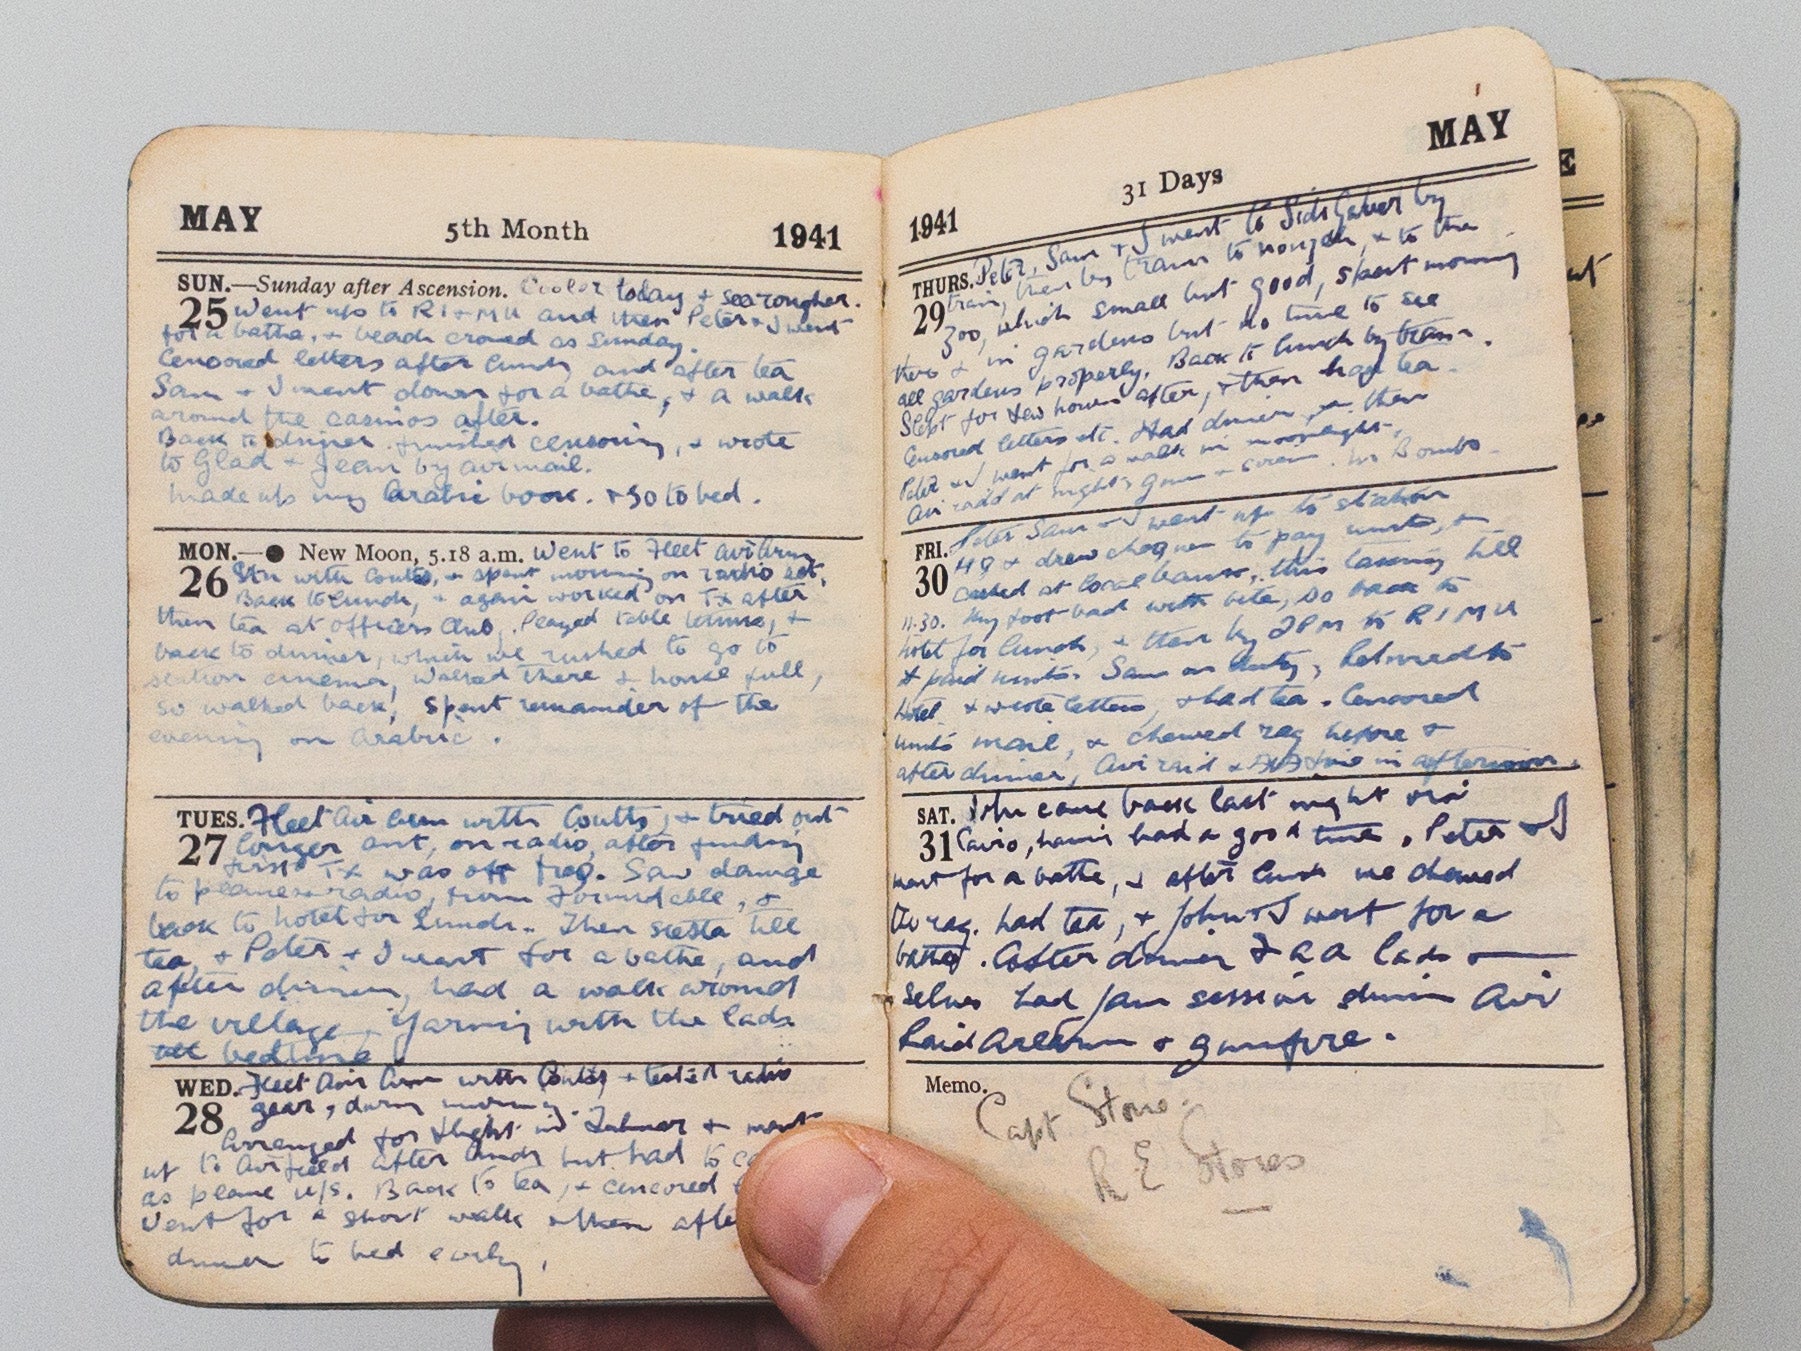 MAY 5th Month 1941
SUN.—Sunday after Ascension. Cooler today + sea rougher.
25 Went up to R I + M U and then Peter + I went
for a bathe, + beach crowed as Sunday.
Censored letters after lunch and after tea
Sam + I went down for a bathe, + a walk
around the casinos after.
Back to dinner. finished censoring, + wrote
to Glad + Jean by airmail.
made up my Arabic book. + so to bed.
MON.—● New Moon, 5.18 a.m. Went to Fleet air Arm
26 with Coutts, + spent morning on radio set.
Back to lunch, + again worked on TX after
then tea at officers Club. Played table tennis, +
back to dinner, which we rushed to go to
station cinema, Walked there + house full,
so walked back, spent remainder of the
evening on Arabic.
TUES. Fleet Air Arm with Coutts, + tried out
27 longer ant, on radio, after finding
first TX was off freq. Saw damage
to planes + radio, from Formidable, +
back to hotel for lunch. Then siesta till
tea, + Peter + I went for a bathe, and
after dinner, had a walk around
the village. Yarning with the lads
till bedtime
WED. Fleet Air Arm with Coutts, + tested radio
28 gear, during morning.
Arranged for flight in Fulmar + went
up to Airfield after lunch but had to
as plane u/s. Back to tea, + censored
Went for a short walk + then
dinner to bed early.
1941 31 Days MAY
THURS. Peter, Sam + I went to Sidi Gaber by
29 train, then by tram to Nouzha, + to the
Zoo, which small but good, spent morning
there + in gardens but no time to see
all gardens properly. Back to lunch by tram.
Slept for few hours after, + then had tea.
Censored letters etc. Had dinner, + then
Peter + I went for a walk in moonlight.
Air raid at night, guns + Bombs.
FRI. Peter Sam + I went up to station
30 HQ + drew cheques to pay units, +
cashed at local bank, this taking till
11.30. My foot bad with bite, so back to
Hotel for lunch, + then by 2PM to R I M U
+ paid units. Sam on duty, Returned to
Hotel + wrote letters, + had tea. Censored
units mail, + chewed rag before +
after dinner, Air raid + in afternoon.
SAT. John came back last night from
31 Cairo, having had a good time. Peter + I
went for a bathe, + after lunch we chewed
the rag. had tea, + John + I went for a
bathe. After dinner F A A lads +
selves had jam session during Air
Raid Alarm + gunfire.
Memo. Capt. Stone.
R E Stores